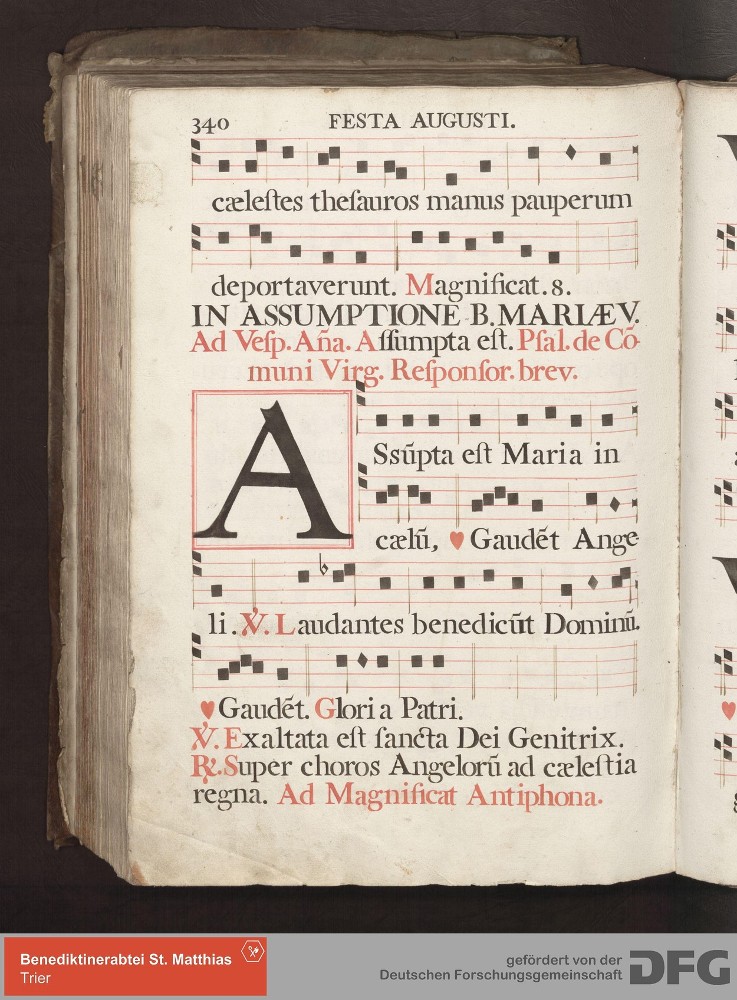 340 FESTA AUGUSTI.
cæleſtes theſauros manus pauperum
deportaverunt. Magnificat. 8.
IN ASSUMPTIONE B. MARIÆ V.
Ad Veſp. Aña. Aſſumpta eſt. Pſal. de Cõ-
muni Virg. Reſponſor. brev.
ASsũpta eſt Maria in
cælũ, ♥ Gaudẽt Ange
li. ℣. Laudantes benedicũt Dominũ.
♥ Gaudẽt. Gloria Patri.
℣. Exaltata eſt ſancta Dei Genitrix.
℟. Super choros Angelorũ ad cæleſtia
regna. Ad Magnificat Antiphona.
Benediktinerabtei St. Matthias
Trier
gefördert von der
Deutschen Forschungsgemeinschaft
DFG